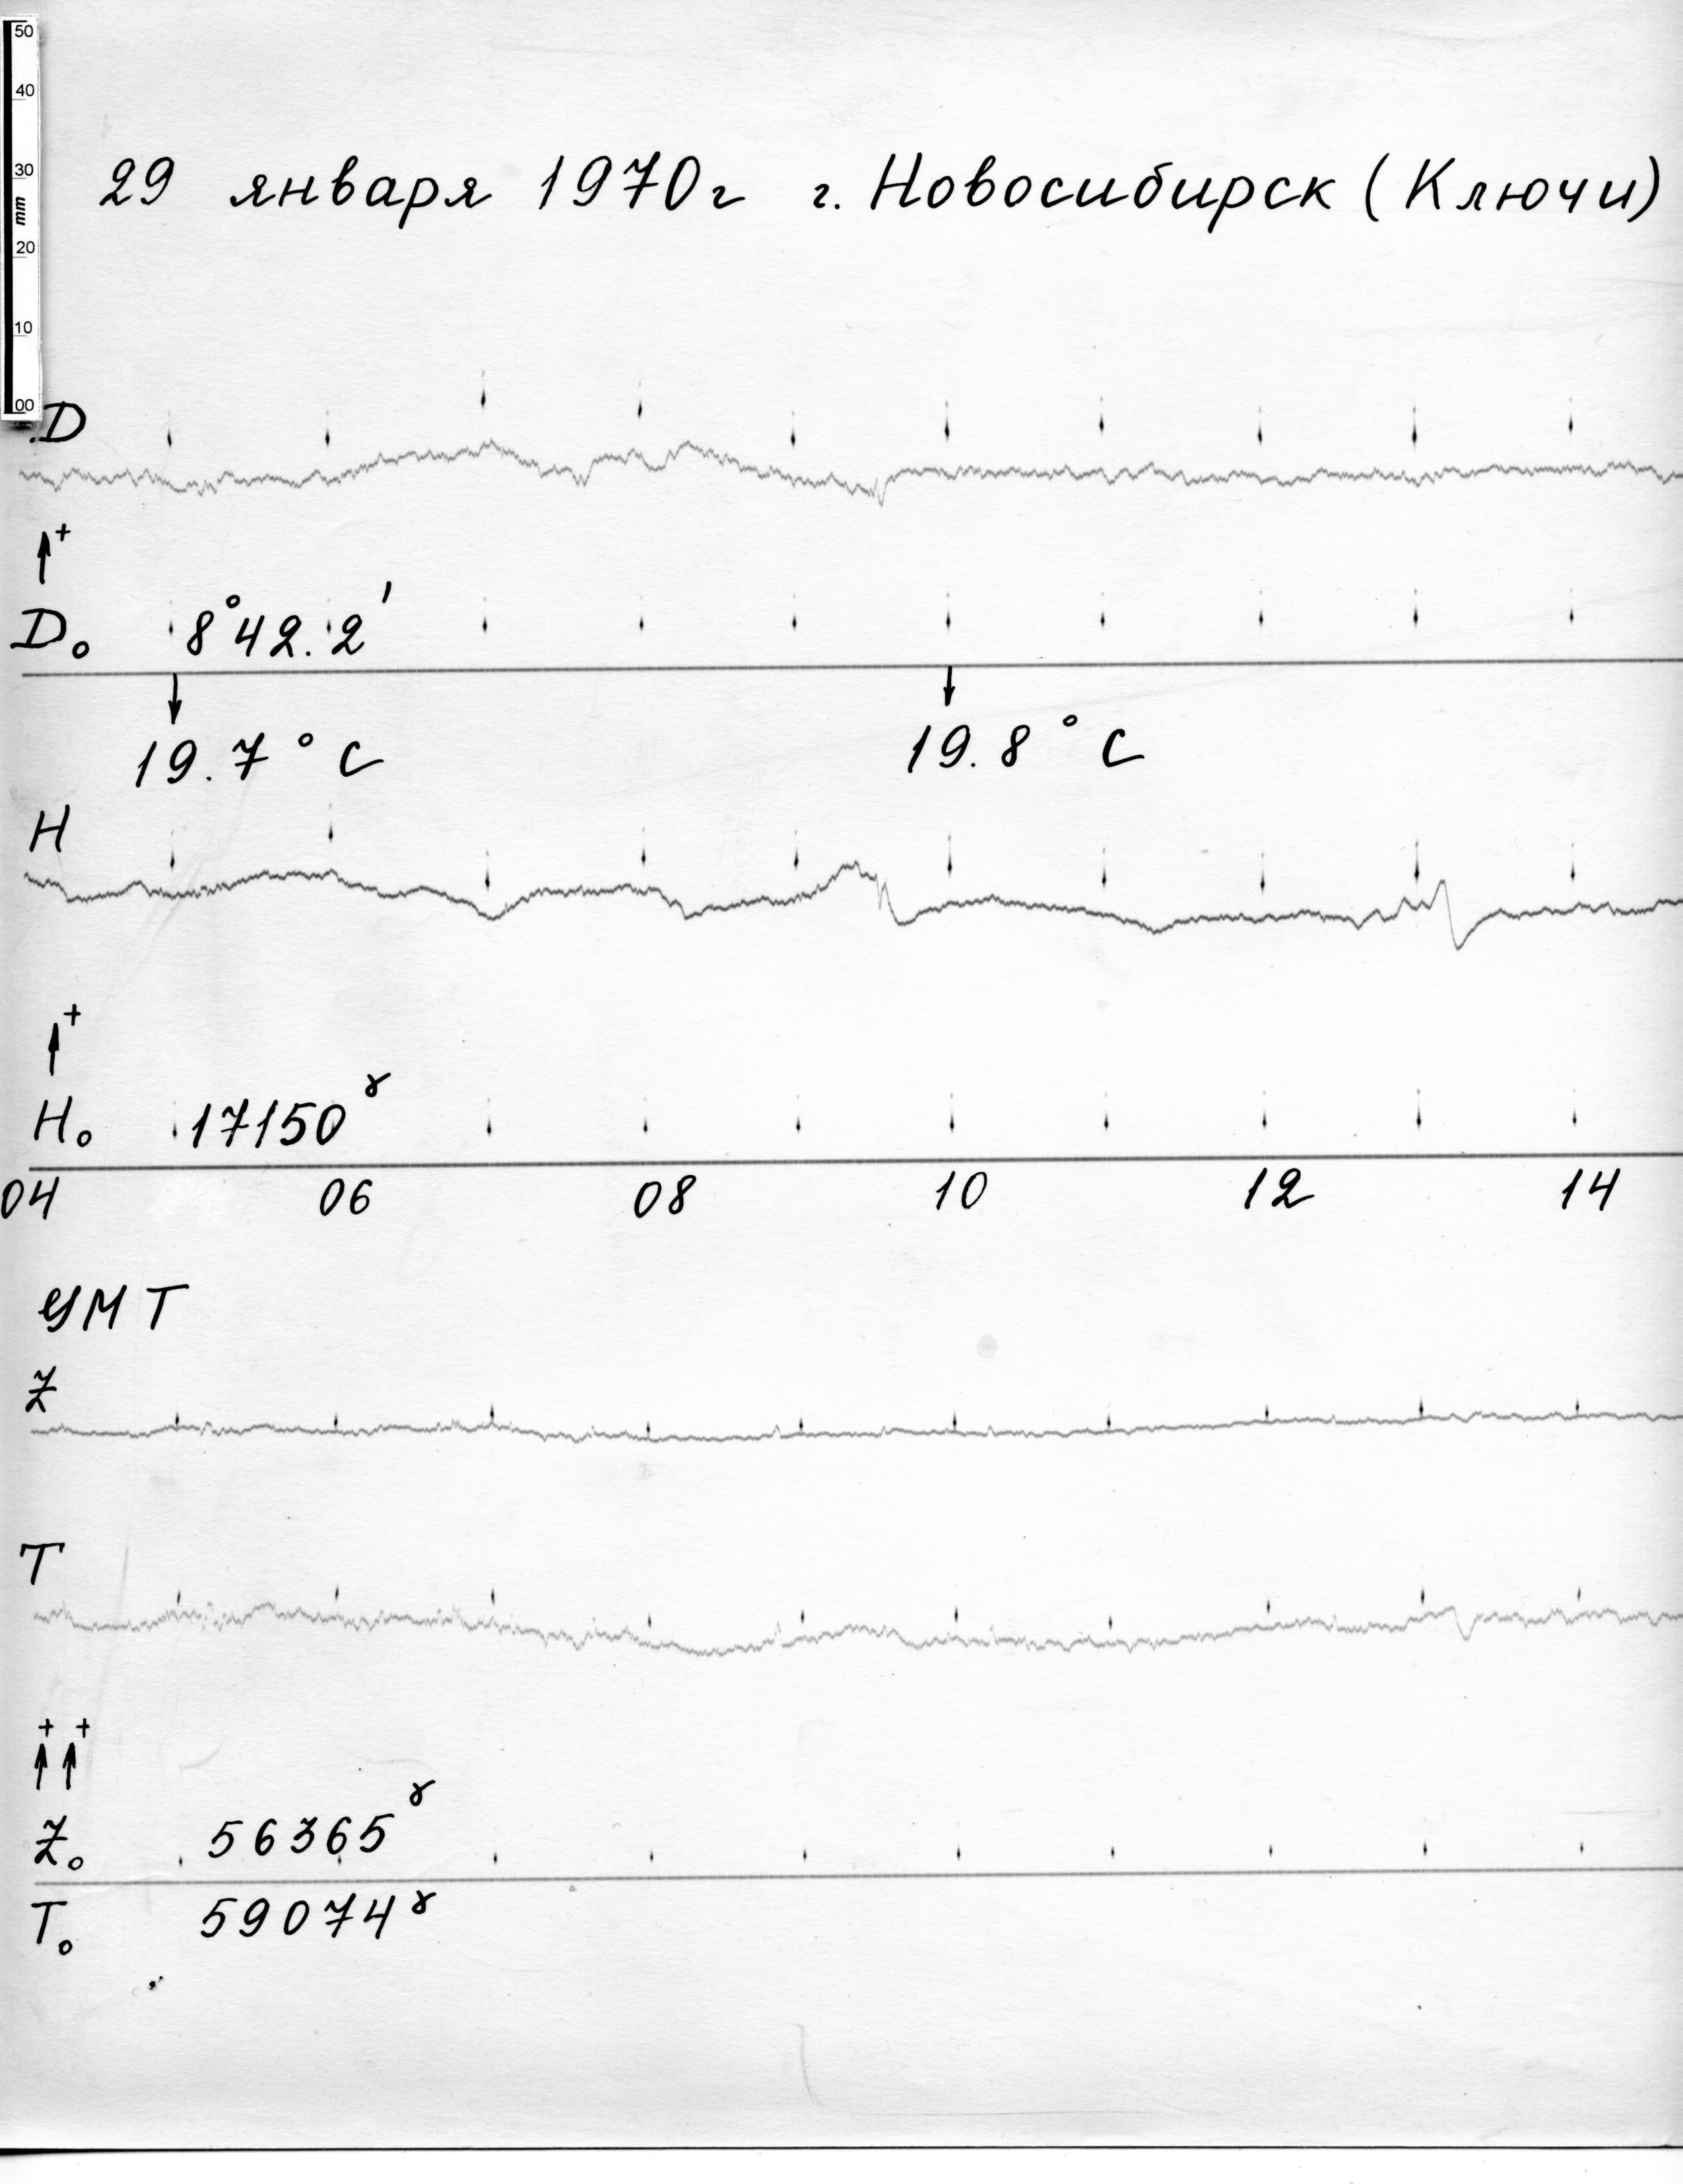 50
40
30
mm
20
10
00
29 января 1970г г. Новосибирск (Ключи)
D
+
D₀ 8°42.2'
19.7°C 19.8°C
H
+
H₀ 17150γ
04 06 08 10 12 14
УМТ
Z
T
+ +
Z₀ 56365γ
T₀ 59074γ